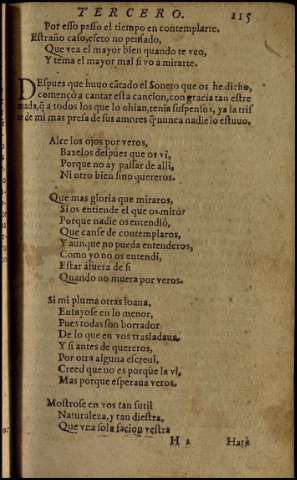 TERCERO. 115
Por esso passo el tiempo en contemplarte.
Estraño caso, efeto no pensado,
Que vea el mayor bien quando te veo,
Y tema el mayor mal si vo a mirarte.
DEspues que huuo cãtado el Soneto que os he dicho,
començò a cantar esta cancion, con gracia tan estre
mada, q̃ a todos los que lo ohian, tenia suspensos, ya la tris
te de mi mas presa de sus amores q̃ nunca nadie lo estuuo.
Alce los ojos por veros,
Baxelos despues que os vi,
Porque no ay passar de alli,
Ni otro bien sino quereros.
Que mas gloria que miraros,
Si os entiende el que os mirò?
Porque nadie os entendiò,
Que canse de contemplaros,
Y aunque no pueda entenderos,
Como yo no os entendi,
Estar âfuera de si
Quando no muera por veros.
Si mi pluma otras loaua,
Ensayose en lo menor,
Pues todas son borrador
De lo que en vos trasladaua.
Y si antes de quereros,
Por otra alguna escreui,
Creed que no es porque la vi,
Mas porque esperaua veros.
Mostrose en vos tan sutil
Naturaleza, y tan diestra,
Que vna sola facion vestra
H 2 Harà